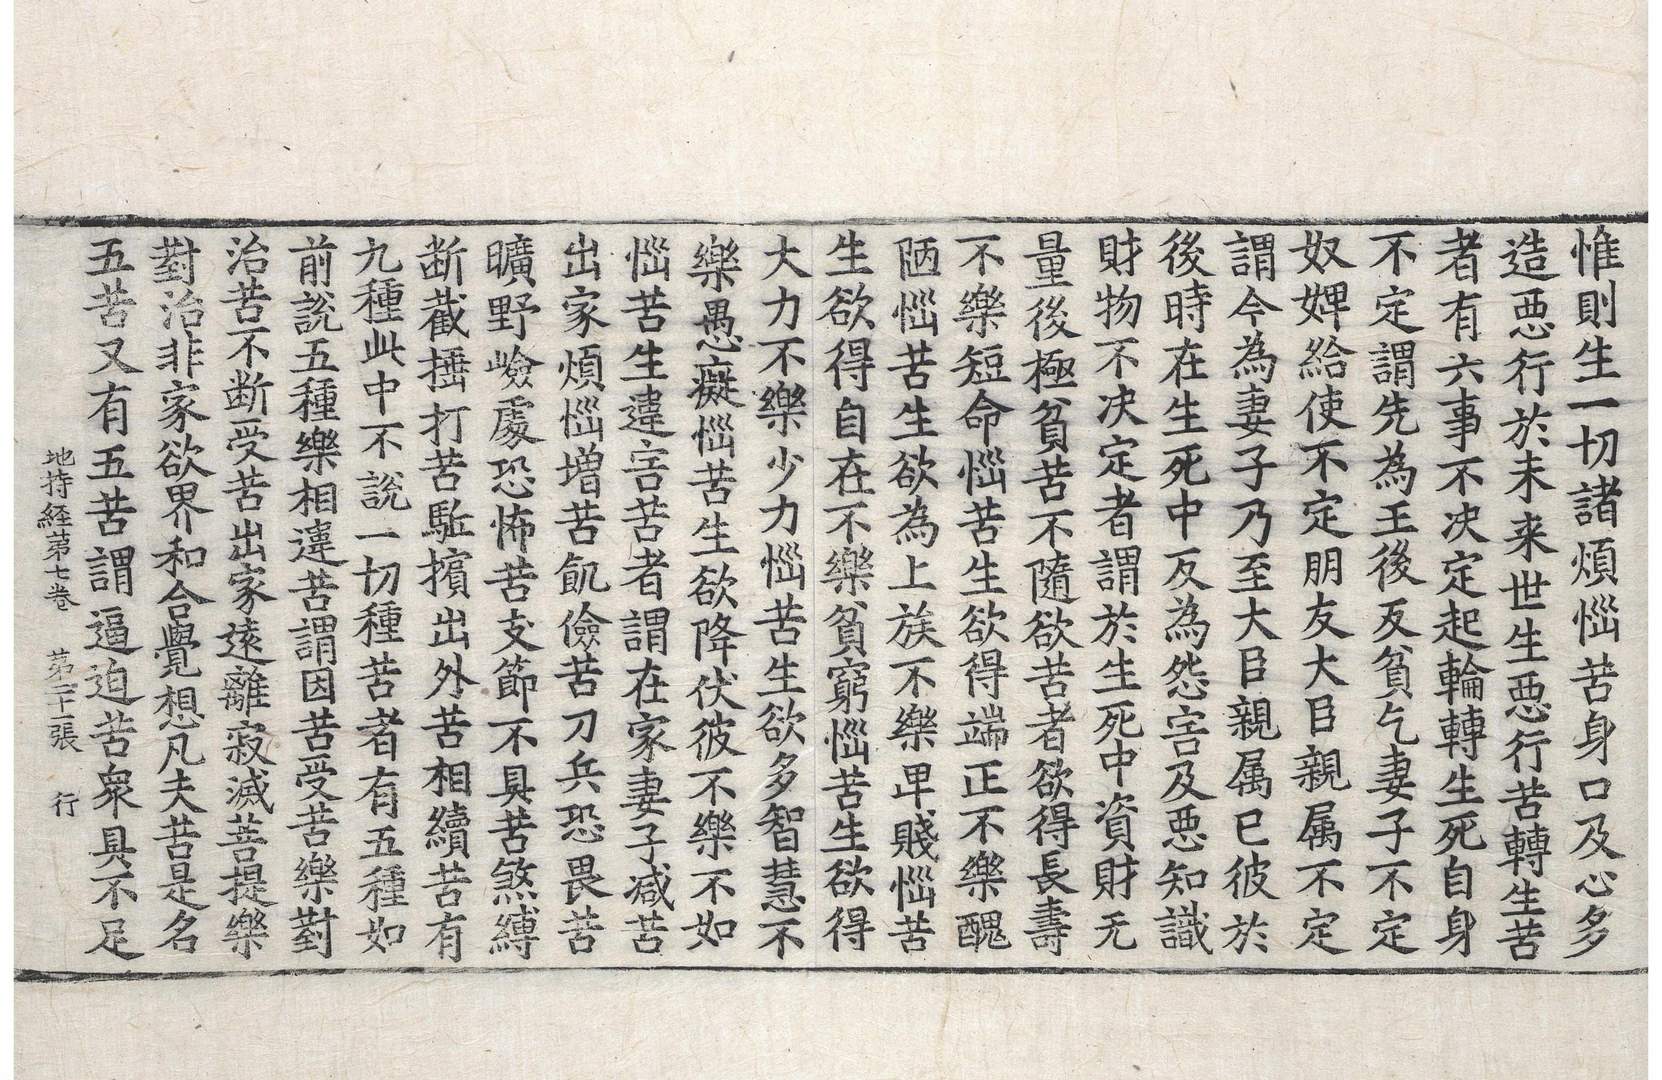 惟則生一切諸煩惱苦身口及心多
造惡行於未来世生惡行苦轉生苦
者有六事不决定起輪轉生死自身
不定謂先為王後反貧乞妻子不定
奴婢給使不定朋友大臣親属不定
謂今為妻子乃至大臣親属已彼於
後時在生死中反為怨害及惡知識
財物不决定者謂於生死中資財无
量後極貧苦不隨欲苦者欲得長壽
不樂短命惱苦生欲得端正不樂醜
陋惱苦生欲為上族不樂卑賤惱苦
生欲得自在不樂貧窮惱苦生欲得
大力不樂少力惱苦生欲多智慧不
樂愚癡惱苦生欲降伏彼不樂不如
惱苦生違害苦者謂在家妻子减苦
出家煩惱增苦飢儉苦刀兵恐畏苦
曠野嶮處恐怖苦支節不具苦煞縛
断截捶打苦駈擯出外苦相續苦有
九種此中不說一切種苦者有五種如
前說五種樂相違苦謂因苦受苦樂對
治苦不断受苦出家遠離寂滅菩提樂
對治非家欲界和合覺想凡夫苦是名
五苦又有五苦謂逼迫苦衆具不足
地持経苐七卷 苐二十二張 行